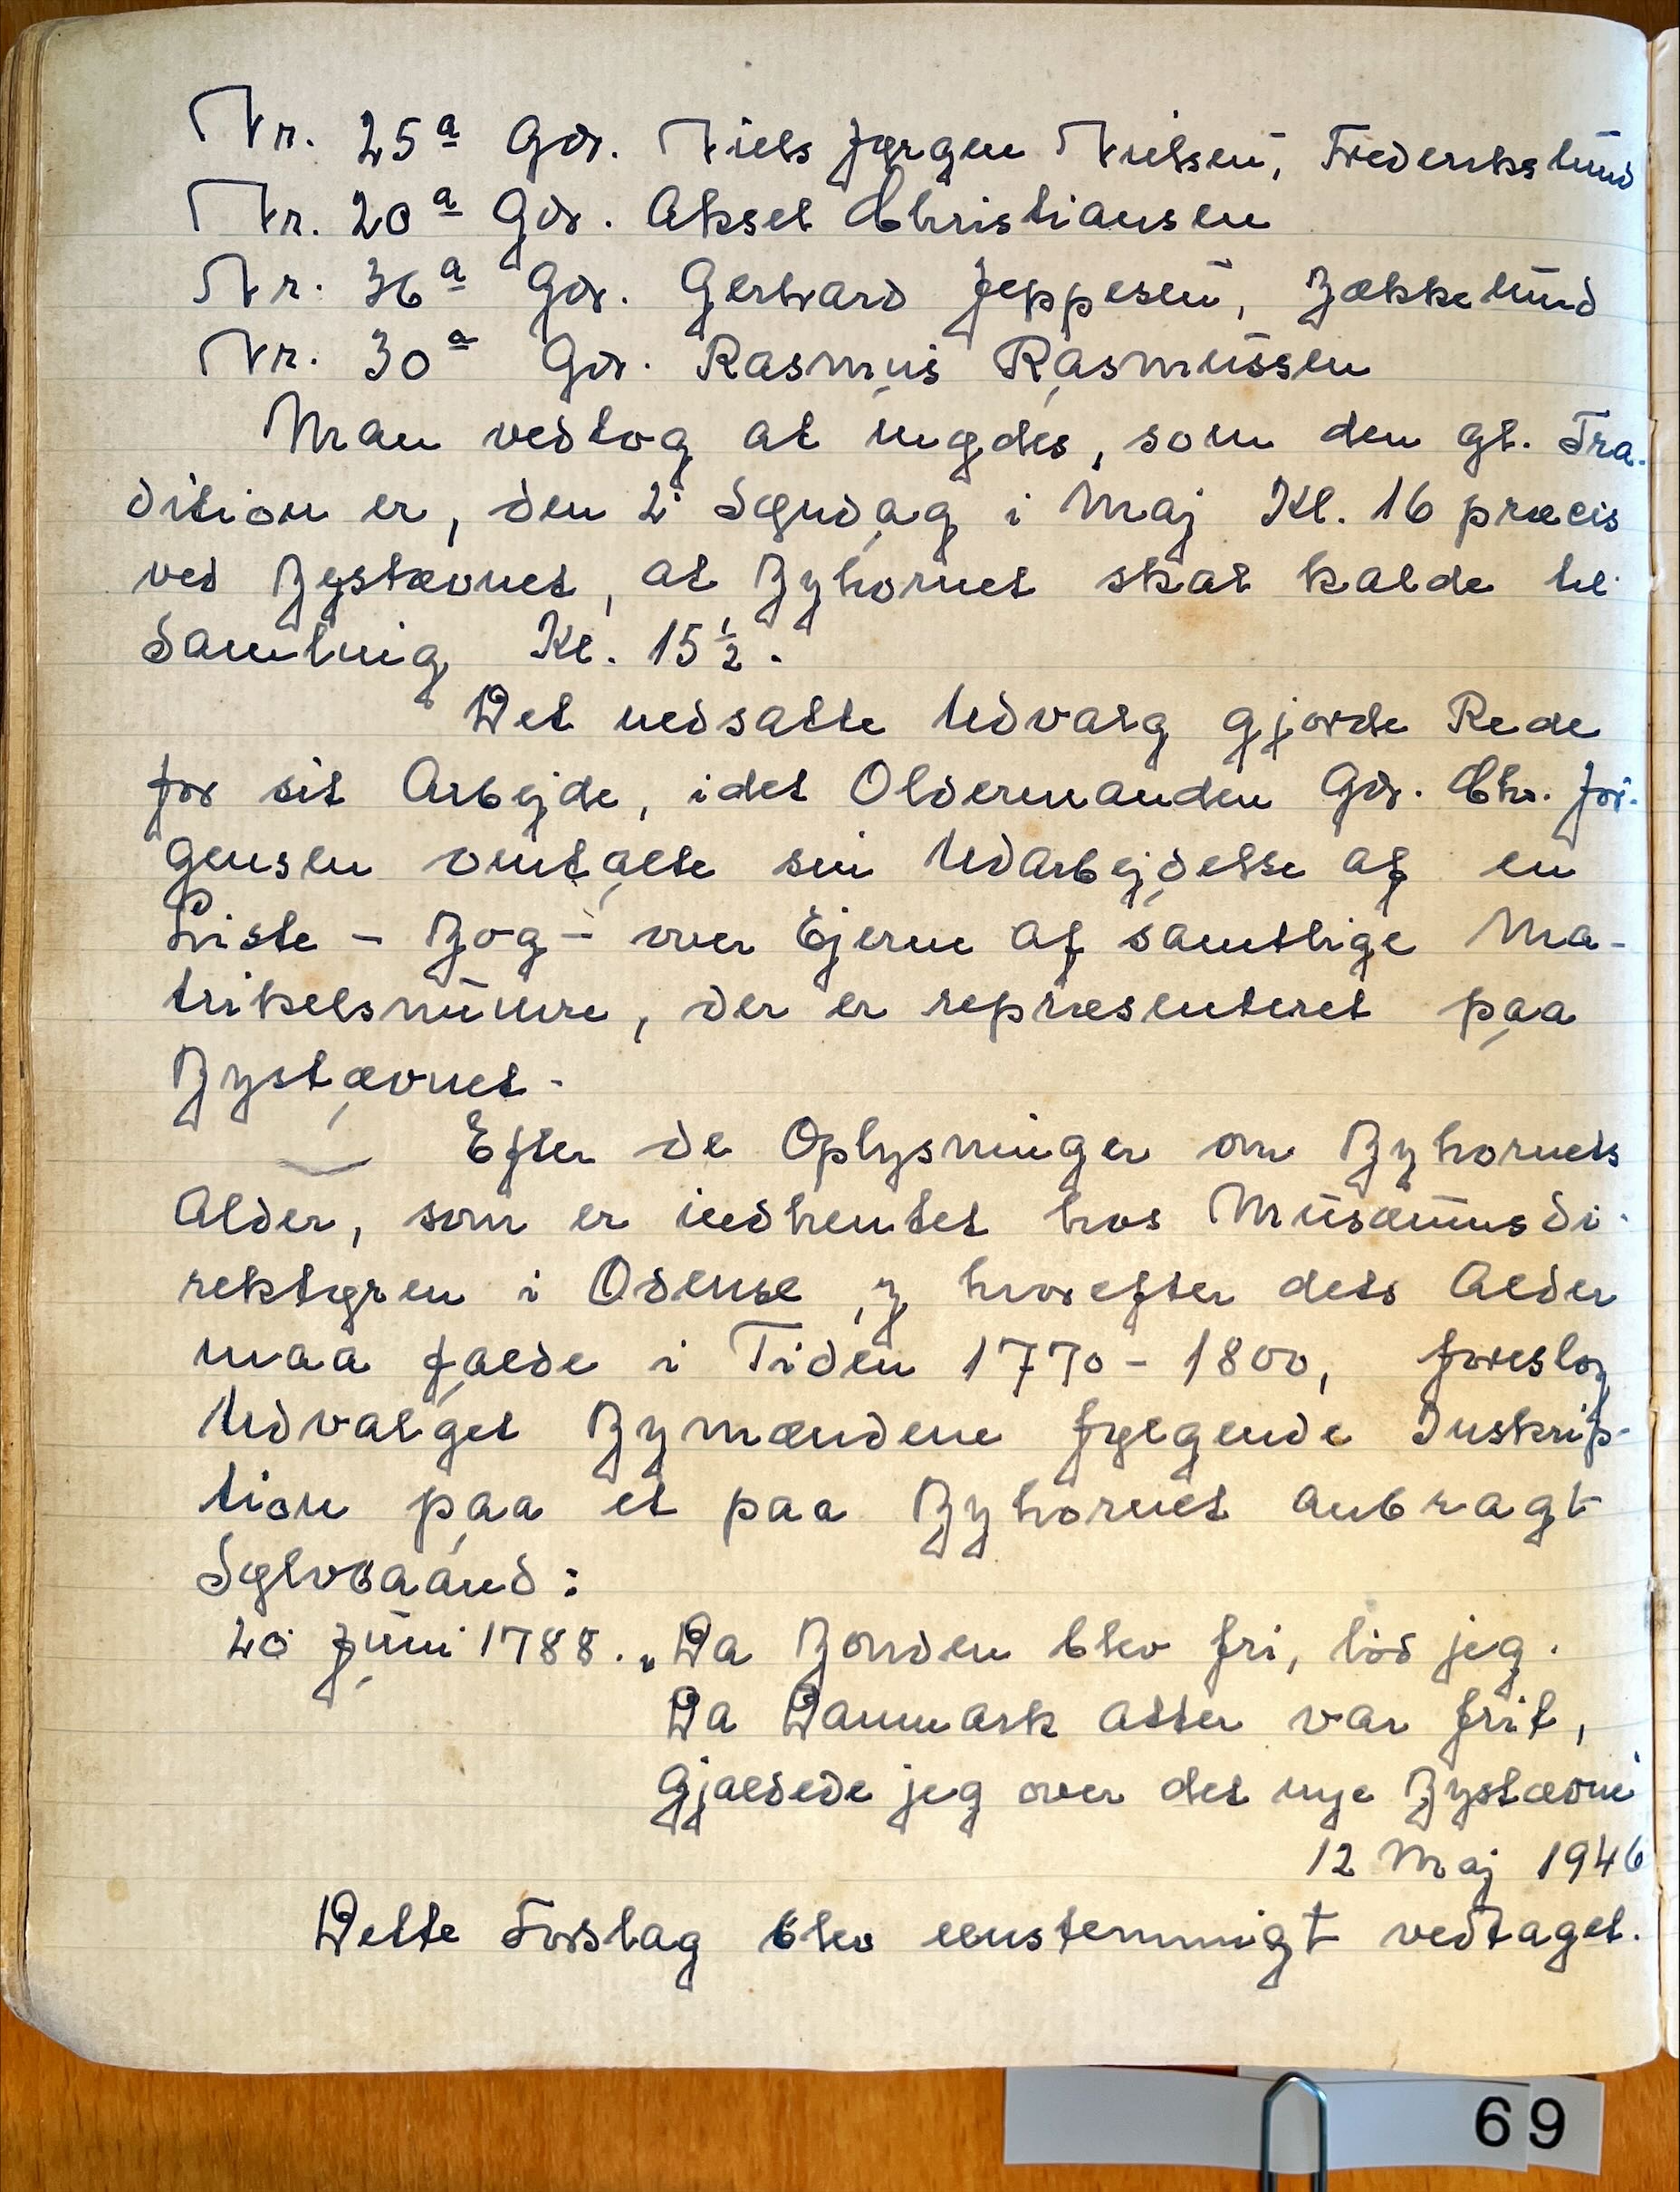 Nr. 25a Gdr. Niels Jørgen Nielsen, Frederikslund
Nr. 20a Gdr. Aksel Christiansen
Nr. 36a Gdr. Gerhard Jeppesen, Bækkelund
Nr. 30a Gdr. Rasmus Rasmussen
Man vedtog at mødes, som den gl. Tra-
dition er, den 2' Søndag i Maj Kl. 16 præcis
ved Bystævnet, at Byhornet skal kalde til
Samling Kl. 15½.
Det nedsatte Udvalg gjorde Rede
for sit Arbejde, idet Oldermanden Gdr. Chr. Jør-
gensen omtalte sin Udarbejdelse af en
Liste - Bog - over Ejerne af samtlige Ma-
trikelsnumre, der er repræsenteret paa
Bystævnet.
Efter de Oplysninger om Byhornets
Alder, som er indhentet hos Musæumsdi-
rektøren i Odense, hvorefter dets Alder
maa falde i Tiden 1770 - 1800, foreslog
Udvalget Bymændene følgende Inskrip-
tion paa et paa Byhornet anbragt
Sølvbaand:
20 Juni 1788. „Da Bonden blev fri, lød jeg.
Da Danmark atter var frit,
gjaldede jeg over det nye Bystævne
12 Maj 1946
Dette Forslag blev eenstemmigt vedtaget.
69